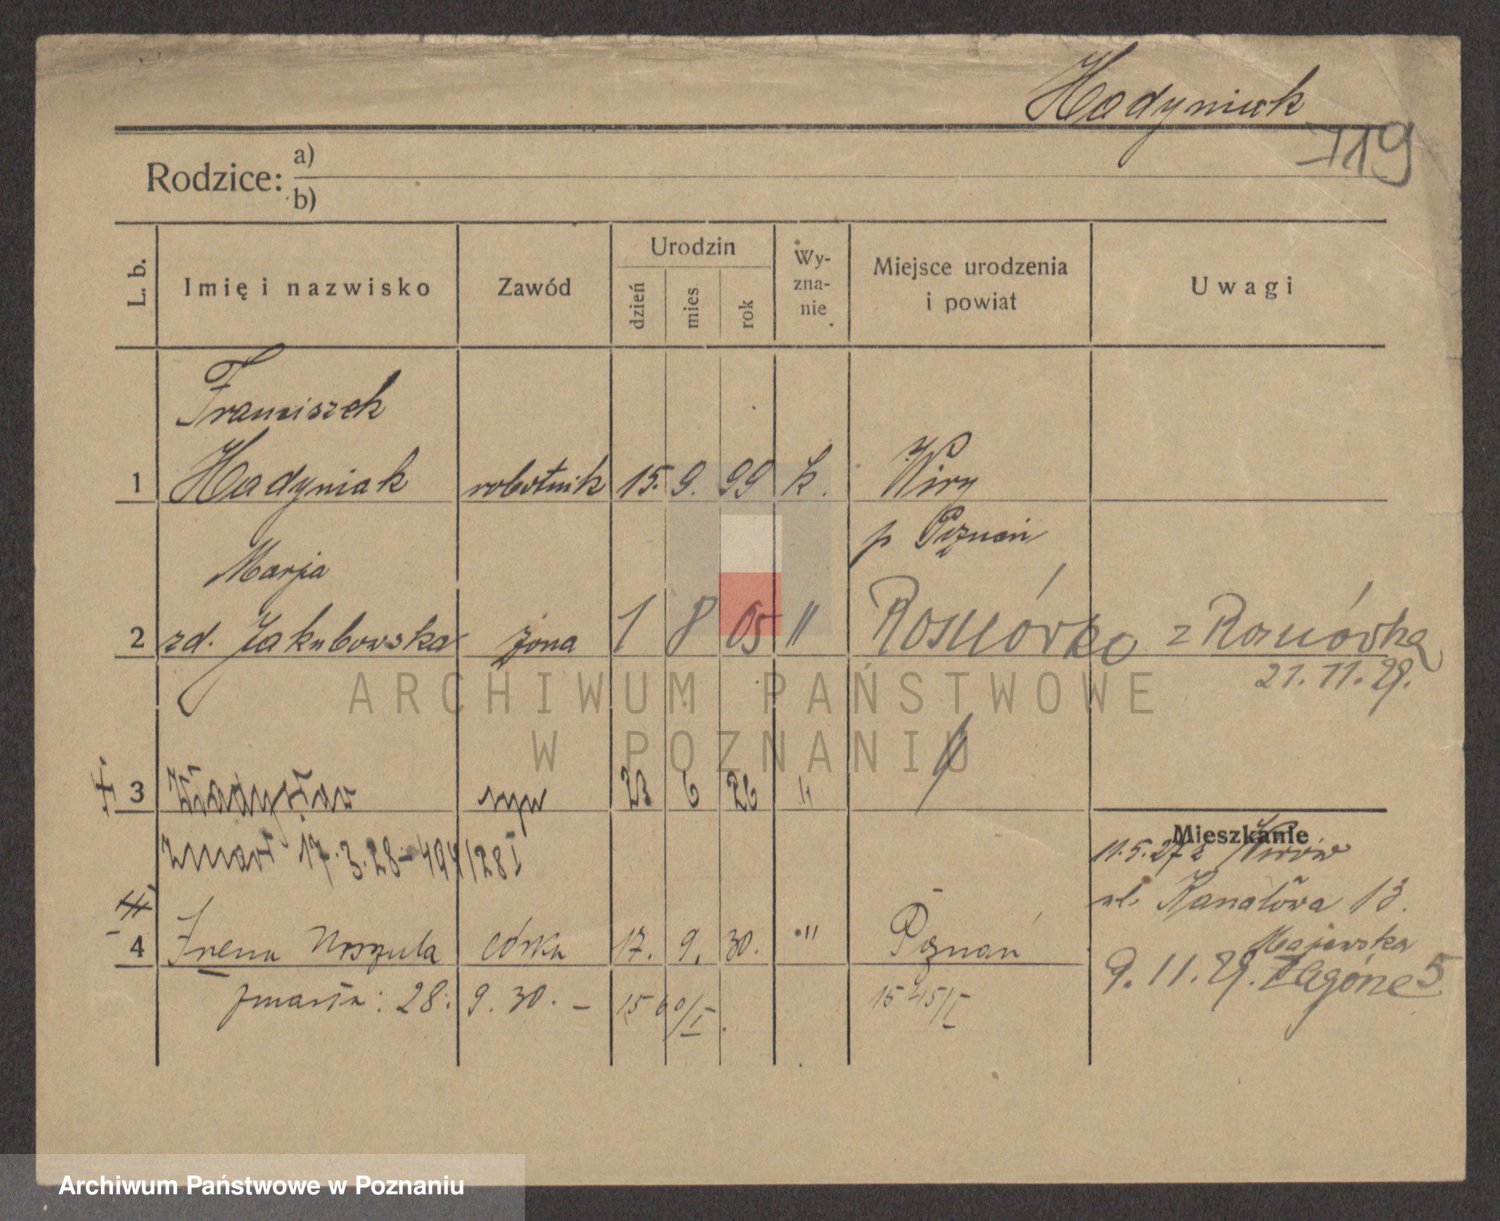 Hadyniak
119
Rodzice: a)
b)
L. b.
Imię i nazwisko
Zawód
Urodzin
dzień
mies
rok
Wy-
zna-
nie
Miejsce urodzenia
i powiat
Uwagi
Franciszek
1 Hadyniak robotnik 15. 9. 99 k. Wiry
p Poznań
Marja
2 zd. Jakubowska żona 1 8 05 " Rosnówko z Rosnówka
21.11.29.
ARCHIWUM PAŃSTWOWE
W POZNANIU
3 Władysław syn 23 6 26 "
zmarł 17.3.28-494/28 I
Mieszkanie
11.5.27 z Wirów
ul. Kanałowa 13.
4 Irena Urszula córka 17. 9. 30. " Poznań
Majewska
9.11.29. Zagórze 5
zmarła: 28. 9. 30. – 1560/I. 1545/I
Archiwum Państwowe w Poznaniu